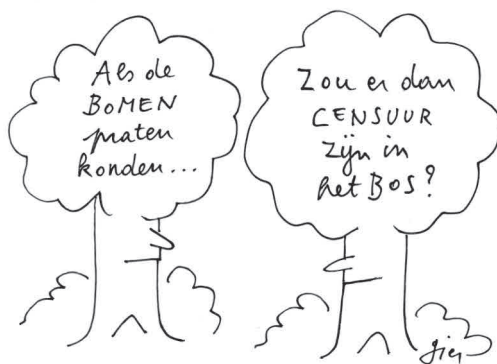 Als de
BOMEN
praten
konden...
Zou er dan
CENSUUR
zijn in
het BOS?